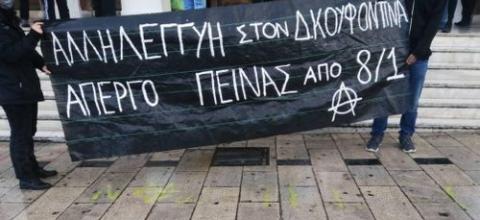 ΑΛΛΗΛΕΓΓΥΗ ΣΤΟΝ ΔΚΟΥΦΟΝΤΙΝΑ
ΑΠΕΡΓΟ ΠΕΙΝΑΣ ΑΠΟ 8/1